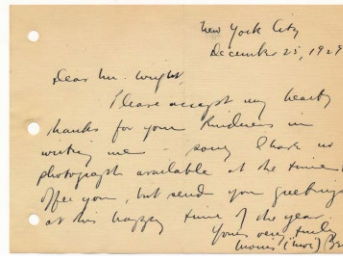 New York City
December 25, 1929
Dear Mr. Wright
Please accept my hearty
thanks for your kindness in
writing me - sorry I have no
photograph available at the time
offer you, but send you greetings
at this happy time of the year.
Yours very truly
Morris